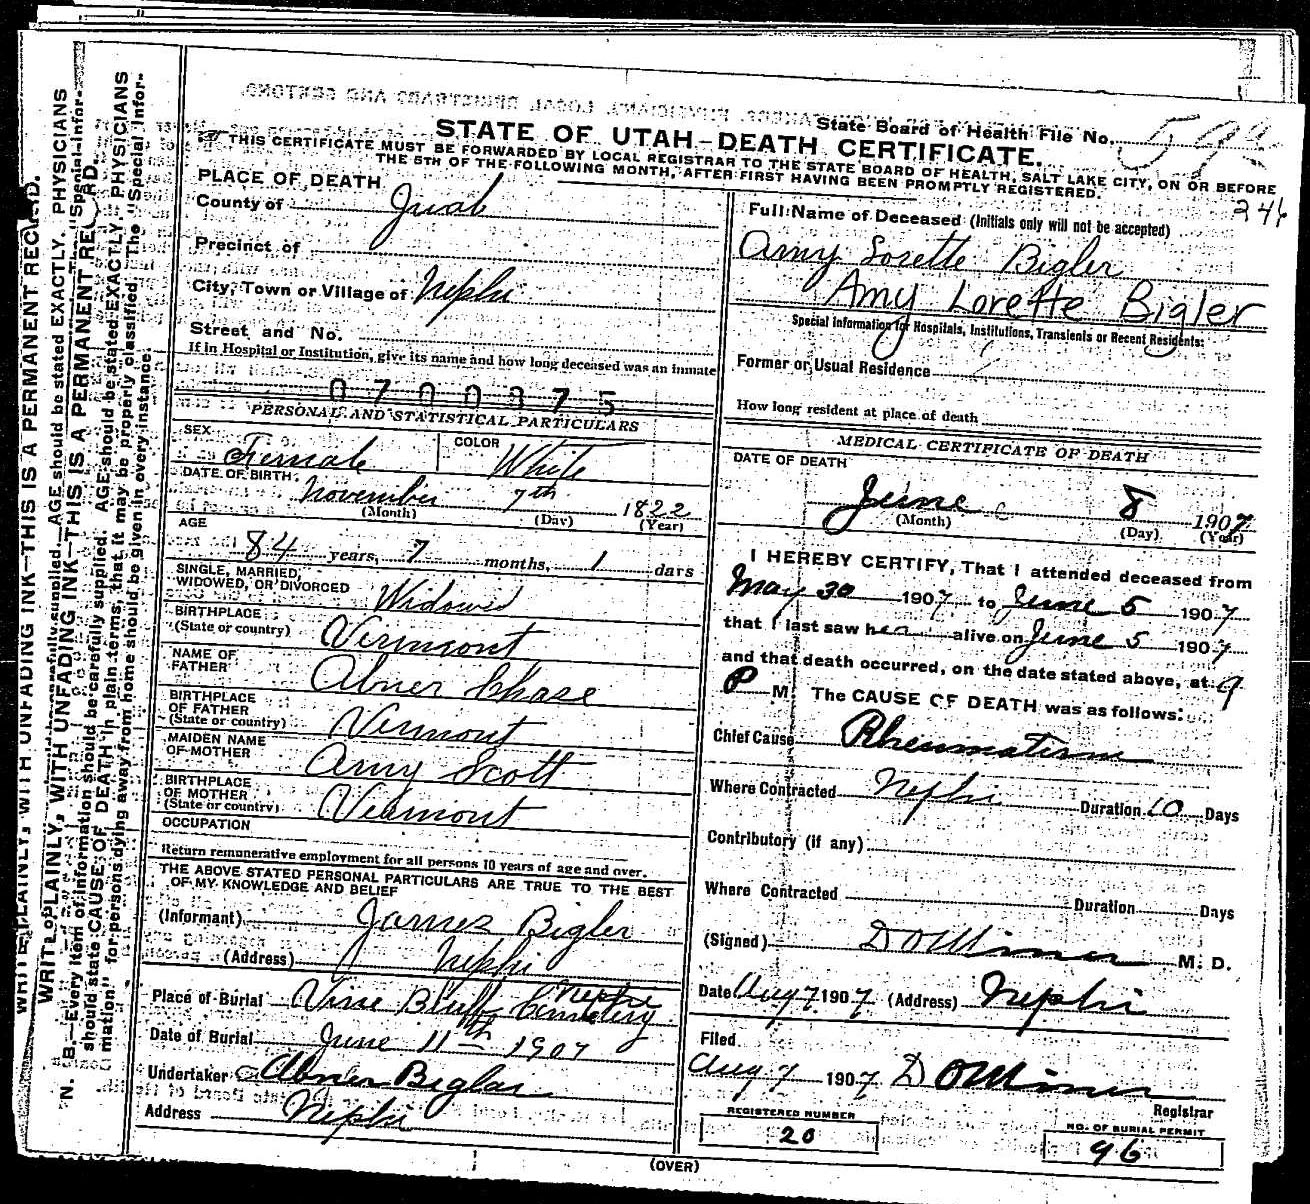 STATE OF UTAH—DEATH CERTIFICATE.
State Board of Health File No.
THIS CERTIFICATE MUST BE FORWARDED BY LOCAL REGISTRAR TO THE STATE BOARD OF HEALTH, SALT LAKE CITY, ON OR BEFORE
THE 5TH OF THE FOLLOWING MONTH, AFTER FIRST HAVING BEEN PROMPTLY REGISTERED.
246
PLACE OF DEATH
County of Juab
Precinct of
City, Town or Village of Nephi
Street and No.
If in Hospital or Institution, give its name and how long deceased was an inmate
0700375
PERSONAL AND STATISTICAL PARTICULARS
SEX Female COLOR White
DATE OF BIRTH November 7th 1822
(Month) (Day) (Year)
AGE
84 years, 7 months, 1 days
SINGLE, MARRIED,
WIDOWED, OR DIVORCED Widowed
BIRTHPLACE
(State or country) Vermont
NAME OF
FATHER Abner Chase
BIRTHPLACE
OF FATHER
(State or country) Vermont
MAIDEN NAME
OF MOTHER Amy Scott
BIRTHPLACE
OF MOTHER
(State or country) Vermont
OCCUPATION
Return remunerative employment for all persons 10 years of age and over.
THE ABOVE STATED PERSONAL PARTICULARS ARE TRUE TO THE BEST
OF MY KNOWLEDGE AND BELIEF
(Informant) James Bigler
(Address) Nephi
Place of Burial Vine Bluff Cemetery Nephi
Date of Burial June 11th 1907
Undertaker Abner Bigler
Address Nephi
Full Name of Deceased (Initials only will not be accepted)
Amy Lorette Bigler
Amy Lorette Bigler
Special information for Hospitals, Institutions, Transients or Recent Residents:
Former or Usual Residence
How long resident at place of death
MEDICAL CERTIFICATE OF DEATH
DATE OF DEATH
June 8 1907
(Month) (Day) (Year)
I HEREBY CERTIFY, That I attended deceased from
May 30 1907 to June 5 1907
that I last saw her alive on June 5 1907
and that death occurred, on the date stated above, at 9
P M. The CAUSE OF DEATH was as follows:
Chief Cause Rheumatism
Where Contracted Nephi Duration 10 Days
Contributory (if any)
Where Contracted Duration Days
(Signed) D O Miner M. D.
Date Aug 7 1907 (Address) Nephi
Filed
Aug 7 1907 D O Miner
Registrar
REGISTERED NUMBER
20
NO. OF BURIAL PERMIT
96
(OVER)
WRITE PLAINLY, WITH UNFADING INK—THIS IS A PERMANENT RECORD.
N. B.—Every item of information should be carefully supplied. AGE should be stated EXACTLY. PHYSICIANS
should state CAUSE OF DEATH in plain terms, that it may be properly classified. The "Special Infor-
mation" for persons dying away from home should be given in every instance.